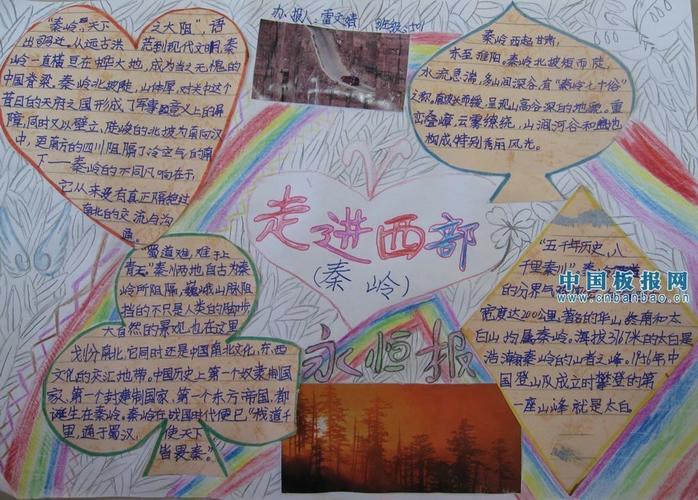 办报人:雷文婧 班级:
"秦岭,天下之大阻",语
出司马迁,从远古洪荒到现代文明,秦
岭一直横亘在中华大地,成为当之无愧的
中国脊梁。秦岭北坡陡,山体厚,对关中这个
昔日的天府之国形成了军事意义上的屏
障,同时又以壁立,陡峻的北坡为面向汉
中,更南方的四川阻隔了冷空气的南
下——秦岭的不同凡响在于,
它从来没有真正隔绝过
南北的交流与沟
通。
秦岭西起甘肃,
东至淮阳。秦岭北坡短而陡,
水流急湍,多山涧深谷,有"秦岭七十峪"
之称。南坡长而缓,呈现山高谷深的地貌。重
峦叠嶂,云雾缭绕,山涧河谷和
构成特别秀丽风光。
走进西部
(秦岭)
永恒报
"蜀道难,难于上
青天"秦川两地,自古为秦
岭所阻隔,巍峨山脉阻
挡的不只是人类的脚步,
大自然的景观也在这里
划分南北,它同时还是中国南北文化,东西
文化的交汇地带。中国历史上第一个奴隶制国
家、第一个封建制国家、第一个东方帝国,都
诞生在秦岭。秦岭在战国时代便已"栈道千
里,通于蜀汉,使天下
皆畏秦。"
"五千年历史,八
千里秦川",秦
的分界与
宽度达200公里,著名的华山、终南和太
白山均属秦岭。海拔3767米的太白是
浩瀚秦岭的山者之峰。1956年中
国登山及成立时攀登的第
一座山峰就是太白。
中国板报网
www.cnbanbao.cn